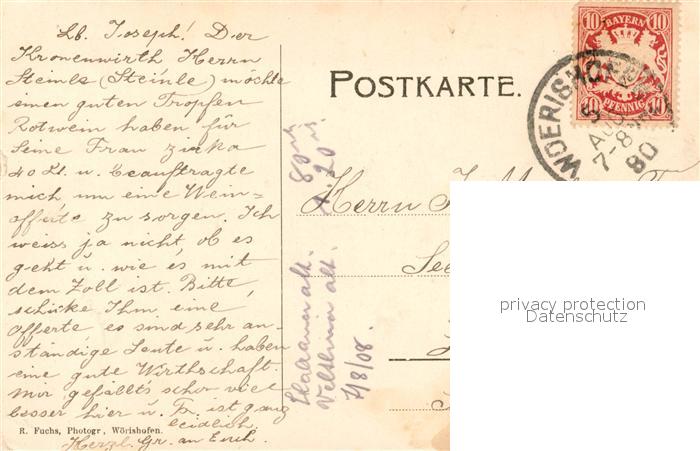 Lb. Joseph! Der
Kronenwirth Herrn
Steinls (Steinle) möchte
einen guten Tropfen
Rotwein haben für
seine Frau zirka
40 Lt. u. beauftragte
mich um eine Wein-
offerte zu sorgen. Ich
weiss ja nicht ob es
geht u. wie es mit
dem Zoll ist. Bitte,
schicke Ihm eine
Offerte es sind sehr an-
ständige Leute u. haben
eine gute Wirthschaft.
Mir gefällt's schon viel
besser hier u. Fr. ist ganz
leidlich.
Herzl. Gr. an Euch.
R. Fuchs, Photogr., Wörishofen.
80
1.20
alt.
Veltliner alt.
7/8/08.
POSTKARTE.
10 BAYERN 10
10 PFENNIG 10
WOERISHOFEN
5
AUG
7-8
80
Herrn
See
privacy protection
Datenschutz